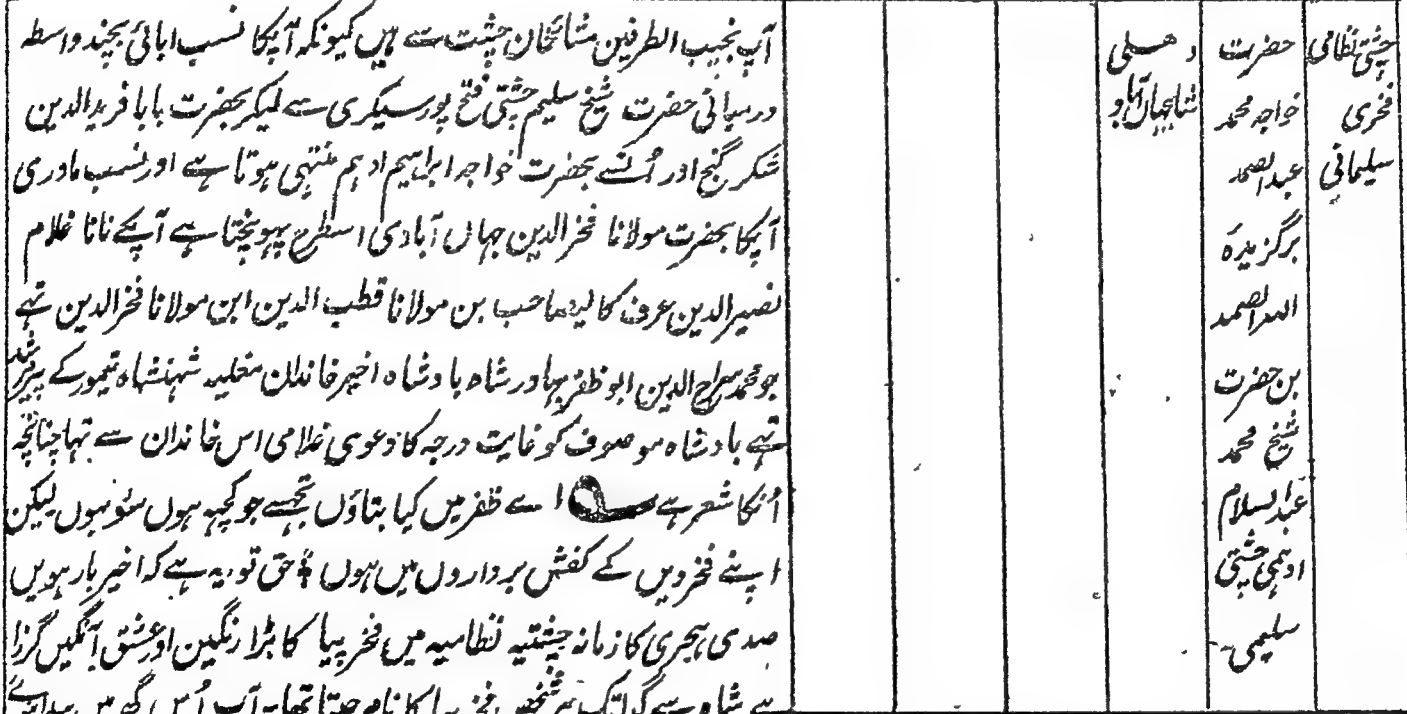 چشتی نظامی
فخری
سلیمانی
حضرت
خواجہ محمد
عبدالصمد
برگزیدہ
اللہ الصمد
بن حضرت
شیخ محمد
عبدالسلام
ادہمی چشتی
سلیمی
دھلی
شاہجہاں آباد
آپ نجیب الطرفین مشائخان چشت سے ہیں کیونکہ آپکا نسب ابائی بچند واسطہ
درمیانی حضرت شیخ سلیم چشتی فتح پور سیکری سے لیکر بحضرت بابا فرید الدین
شکر گنج اور اُنسے بحضرت خواجہ ابراہیم ادہم منتہی ہوتا ہے اور نسب مادری
آپکا بحضرت مولانا فخر الدین جہاں آبادی اسطرح پہونچتا ہے آپکے نانا غلام
نصیر الدین عرف کالیصاحب بن مولانا قطب الدین ابن مولانا فخر الدین تہے
جو محمد سراج الدین ابو ظفر بہادر شاہ بادشاہ اخیر خاندان مغلیہ شہنشاہ تیمور کے پیر مرشد
تہے بادشاہ موصوف کو غایت درجہ کا دعوی غلامی اس خاندان سے تہا چنانچہ
اُنکا شعر ہے اے ظفر میں کیا بتاؤں تجھسے جو کچہہ ہوں سو ہوں لیکن
اپنے فخر دیں کے کفش برداروں میں ہوں حق تو یہ ہے کہ اخیر بارہویں
صدی ہجری کا زمانہ چشتیہ نظامیہ میں فخر پیا کا بڑا رنگین اور عشق آنگیں گزرا
ہے شاہ سے گدا تک ہر شخص فخر پیا کا نام جپتا تھا آپ اُس گھر میں پیدا ہوئے